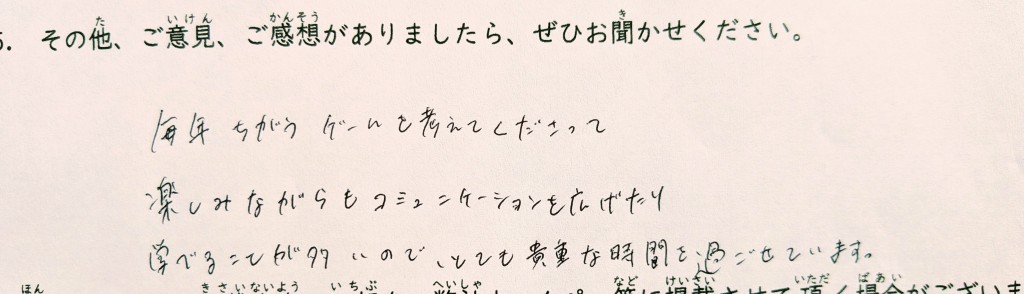 5. その他、ご意見、ご感想がありましたら、ぜひお聞かせください。
毎年 ちがう ゲームを考えてくださって
楽しみながらもコミュニケーションを広げたり
学べることが多いので、とても貴重な時間を過ごせています。